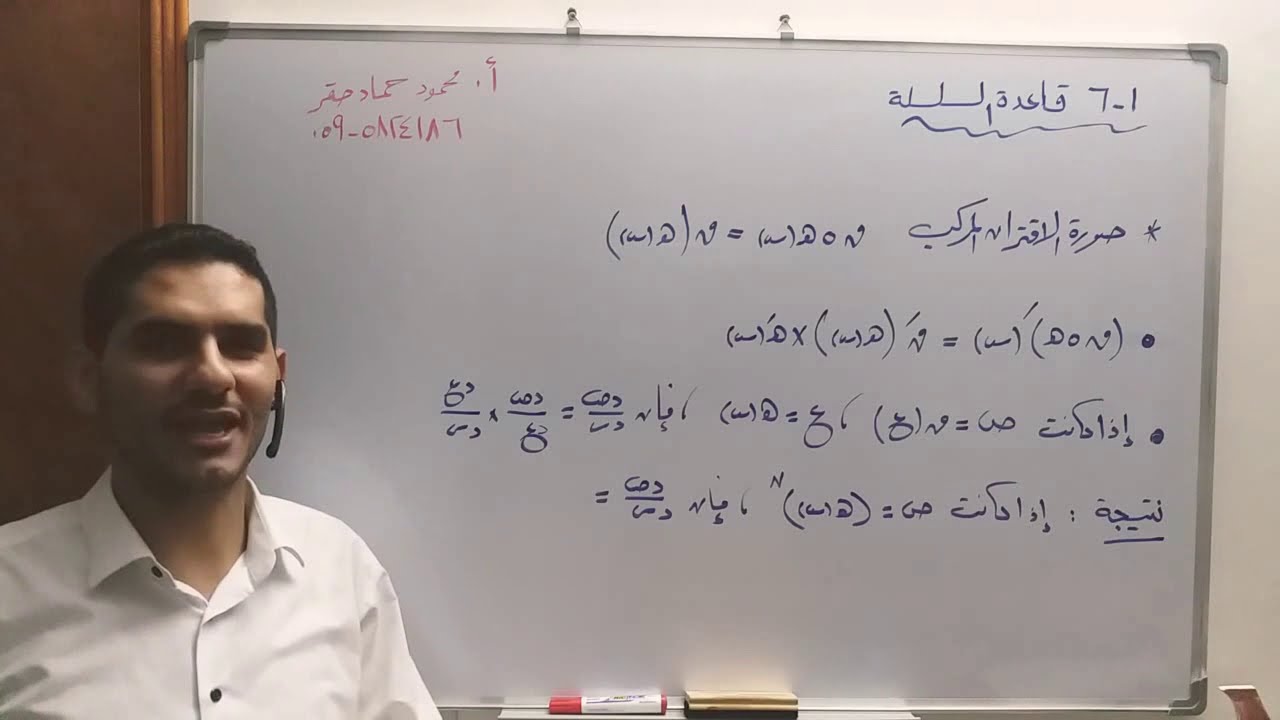 ١-٦ قاعدة السلسلة
أ. محمود حماد صقر
٠٥٩-٥٨٢٤١٨٦
* صورة الاقتران المركب ق ٥ هـ(س) = ق(هـ(س))
• (ق ٥ هـ)´(س) = ق´(هـ(س)) × هـ´(س)
• إذا كانت ص = ق(ع) ، ع = هـ(س) ، فإن دص/دس = دص/دع × دع/دس
نتيجة : إذا كانت ص = (هـ(س))^ن ، فإن دص/دس =